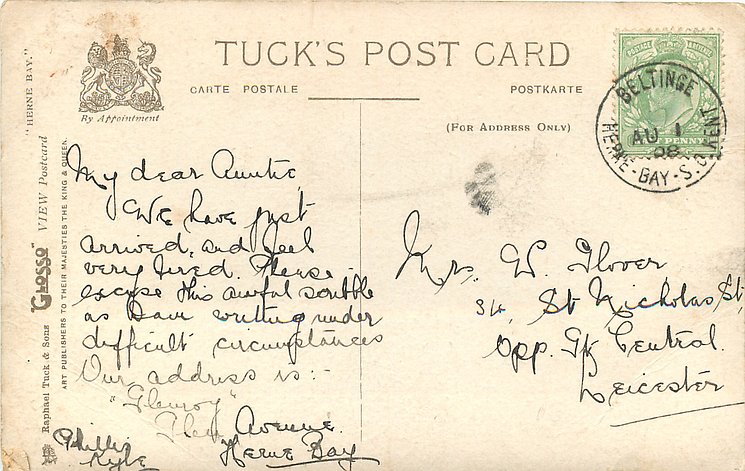 TUCK'S POST CARD
CARTE POSTALE
POSTKARTE
By Appointment
(FOR ADDRESS ONLY)
"HERNE BAY."
"GLOSSO" VIEW Postcard
Raphael Tuck & Sons
ART PUBLISHERS TO THEIR MAJESTIES THE KING & QUEEN.
POSTAGE
PENNY
BELTINGE
AU 1
HERNE-BAY-S.O. KENT
My dear Auntie,
We have just
arrived, and feel
very tired. Please
excuse this awful scribble
as I am writing under
difficult circumstances
Our address is:-
"Glenroy"
Avenue.
Herne Bay
Phillis
Kyle
Mrs. W. Glover
34, St Nicholas St,
Opp. Gt Central.
Leicester